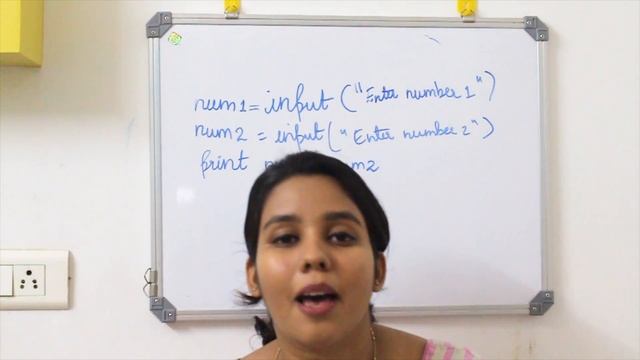 num1 = input ("Enter number 1")
num2 = input ("Enter number 2")
print num2